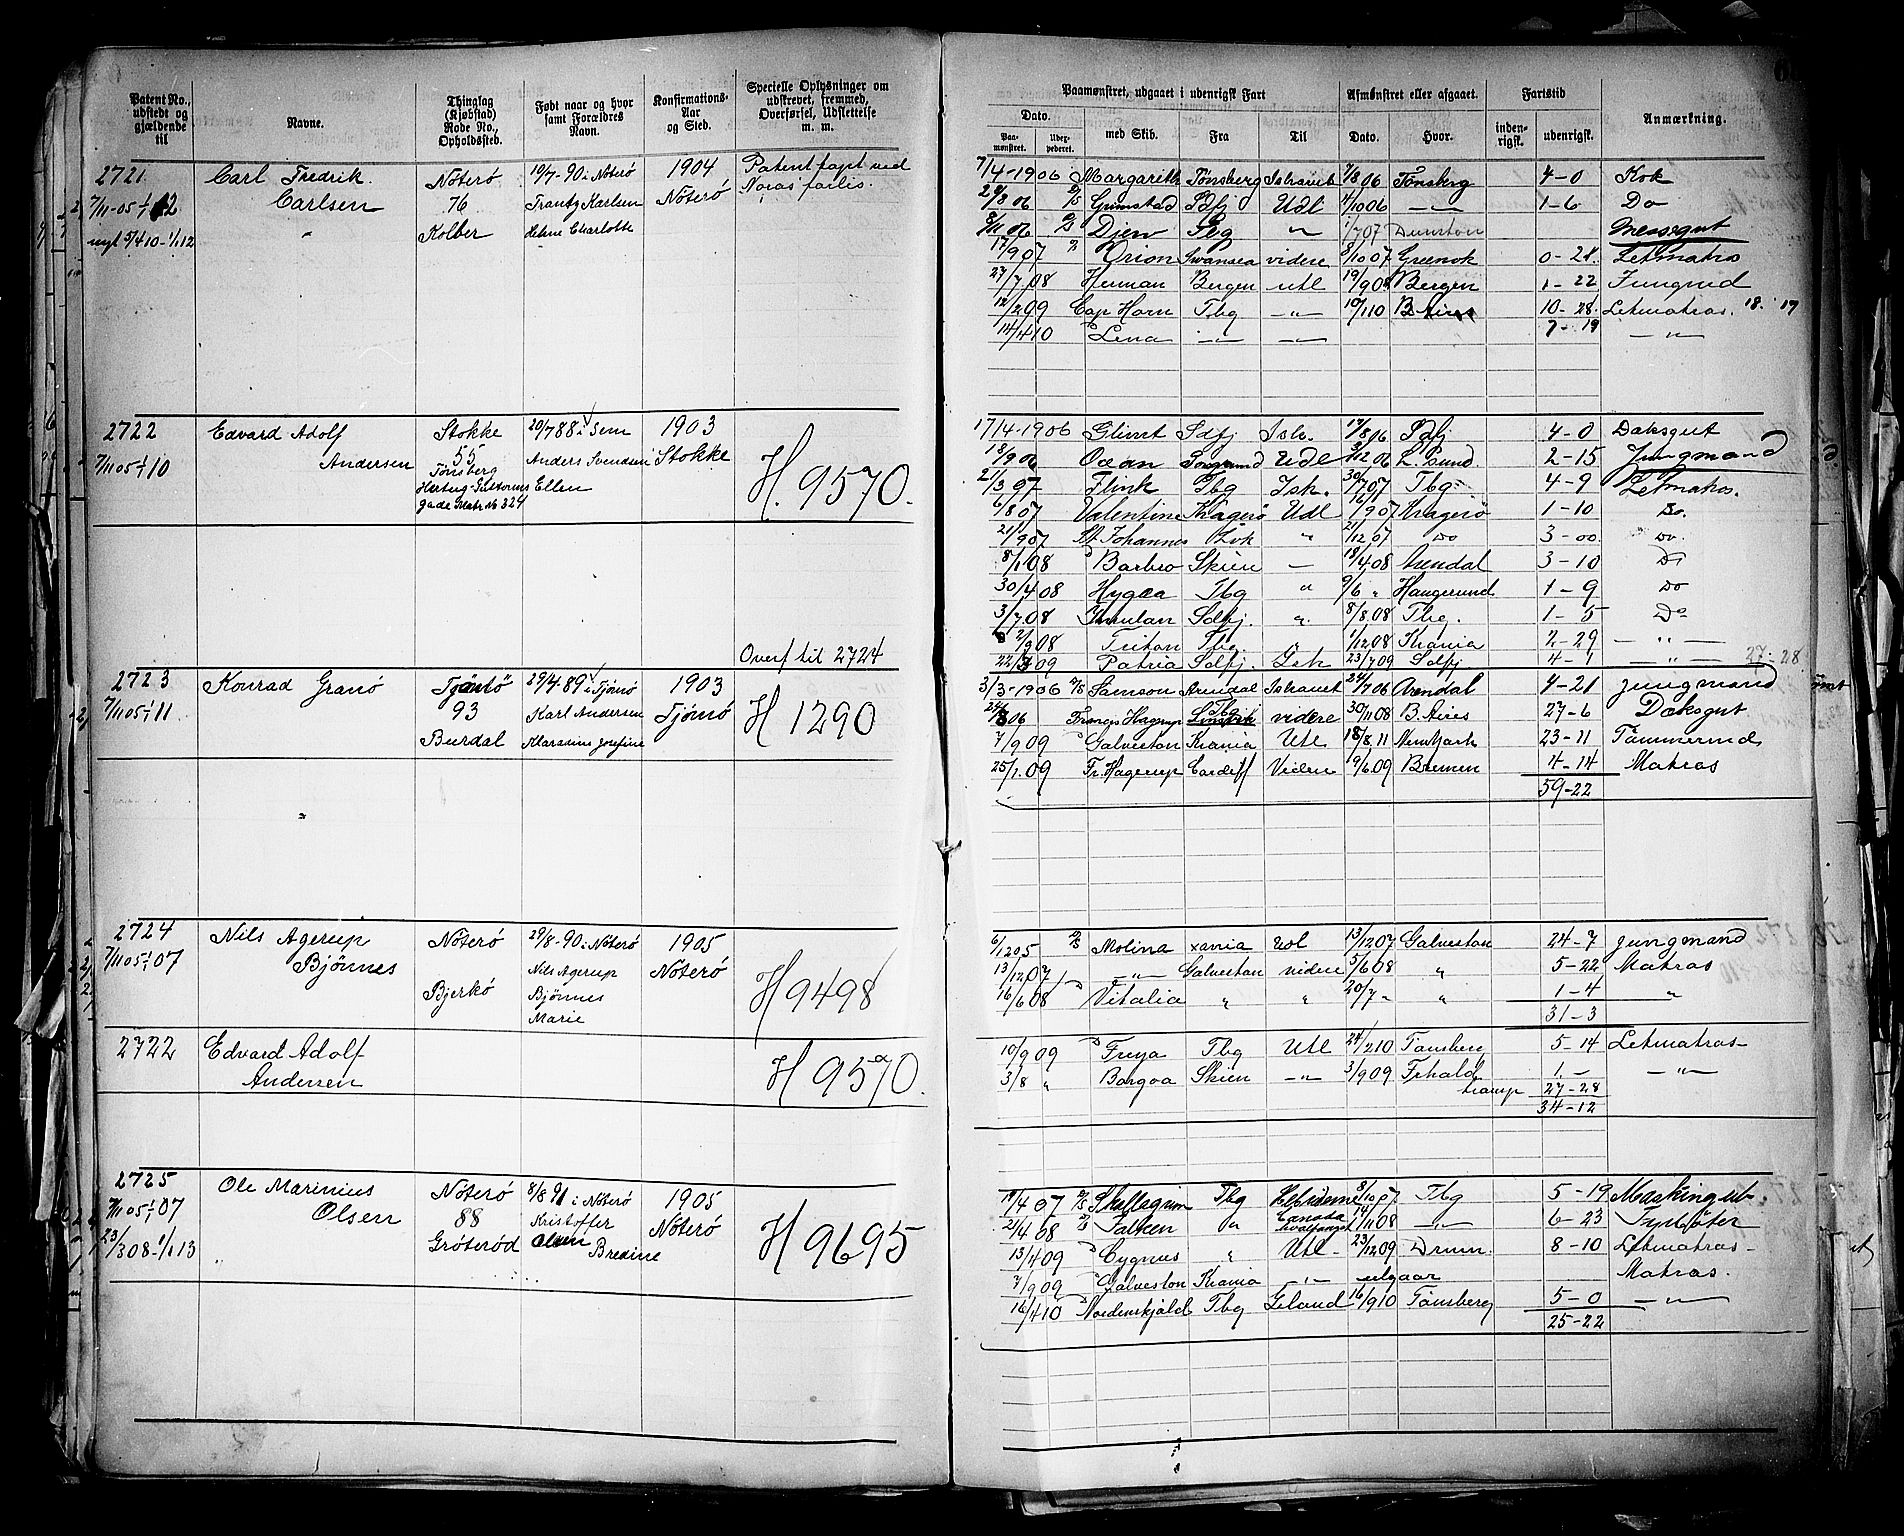 Patent No., udstedt og gjældende til
Navne.
Thinglag (Kjøbstad) Rode No., Opholdssted.
Født naar og hvor samt Forældres Navn.
Konfirmations-Aar og Sted.
Specielle Oplysninger om udskrevet, fremmed, Overførsel, Udslettelse m. m.
Paamønstret, udgaaet i udenrigsk Fart
Afmønstret eller afgaaet.
Fartstid
Anmærkning.
Dato.
Paa-mønstret.
med Skib.
Fra
Til
Dato.
Hvor.
inden-rigsk.
udenrigsk.
2721
7/11-05-1/1 12
nyt 5/4 10-1/1 12
Carl Fredrik
Carlsen
Nöterö
76
Kolber
19/7-90 i Nöterö
Frantz Karlsen
Helene Charlotte
1904
Nöterö
Patent tapt ved
Noras forlis.
7/4-1906 Margareth Tönsberg Ishavet 7/8 06 Tönsberg 4-0 Kok
29/8 06 Grimstad Sdfj Udl 7/10 06 1-6 Do
8/11 06 Tbg " 1/7 07 Messegut
17/9 07 Orion Swansea videre 8/10 07 Greenok 0-21 Letmatros
27/7 08 Herman Bergen utl 19/9 08 Bergen 1-22 Jungmd
12/2 09 Cap Horn Tbg -"- 10/1 10 B. Aires 10-28 Letmatros. 18. 17
14/4 10 Lena -"- -"- 7-19 -"-
2722
7/11 05-1/1 10
Edvard Adolf
Andersen
Stokke
55
Tönsberg
Hertug Guttorms
gade Matr No 324
20/7 88 i Sem
Anders Svendsen
Ellen
1903
Stokke
H. 9570.
Overf til 2724
17/4-1906 Sdfj Ish. 17/8 06 Sdfj 4-0 Dæksgut
18/9 06 Ocean Udl 2/12 06 L. sund. 2-15 Jungmand
21/3 07 Flink Tbg Ish. 30/7 07 Tbg 4-9 Letmatros.
6/8 07 Valentine Kragerö Udl 16/9 07 Kragerö 1-10 Do.
21/9 07 St Johannes " 21/12 07 Do 3-00 Do.
8/1 08 Barbro Skien - 18/4 08 Arendal 3-10 Do
30/4 08 Hygea Tbg " 9/6 " Haugesund 1-9 Do
3/7 08 Sdfj. " 8/8 08 Tbg. 1-5 Do
2/9 08 Triton Tbg 1/12 08 Krania 2-29 -"-
22/3 09 Patria Sdfj. Ish 23/7 09 Sdfj 4-1 -"- 27-28
2723
7/11 05-1/1 11
Konrad Granö
Tjömö
93
Burdal
29/4-89 i Tjömö
Karl Andersen
Josefine
1903
Tjömö
H 1290
3/3-1906 Samson Arendal Ishavet 24/7 06 Arendal 4-21 Jungmand
24/8 06 Frangs Hagerup Tbg videre 30/11 08 B. Aires 27-6 Dæksgut
7/9 09 Galveston Krania Utl 18/8 11 New York 23-11 Tömmermd
25/1 09 Fr. Hagerup Cardiff Videre 9/6 09 Bremen 4-14 Matros
59-22
2724
7/11 05-1/1 07
Nils Agerup
Bjönnes
Nöterö
Bjerkö
29/8-90 i Nöterö
Nils Agerup
Bjönnes
Marie
1905
Nöterö
H 9498
6/12 05 Molina Xania Udl 13/12 07 Galveston 24-7 Jungmand
13/12 07 -"- Galveston videre 5/6 08 " 5-22 Matros
16/6 08 Vitalia " " 20/7 " " 1-4 "
31-3
2722
Edvard Adolf
Andersen
H 9570.
10/9 09 Freya Tbg Utl 24/2 10 Tönsberg 5-14 Letmatros
3/8 " Borgoa Skien -"- 3/9 09 Frhald 1- -"-
transp 27-28
34-12
2725
7/11 05-1/1 07
23/3 08-1/1 13
Ole Marinius
Olsen
Nöterö
88
Gröteröd
8/8 91 i Nöterö
Kristoffer
Olsen Bredine
1905
Nöterö
H 9695
17/4 07 Skallagrim Tbg 8/10 07 Tbg 5-19 Maskingut
21/4 08 Falken " Canada hvalfangst 14/11 08 -"- 6-23 Fyrböter
13/4 09 Cygnus " Utl 23/12 09 Dram. 8-10 Letmatros
7/9 09 Galveston Krania -"- utgaar Matros.
16/4 10 Nordenskjold Tbg Island 16/9 10 Tönsberg 5-0 -"-
25-22